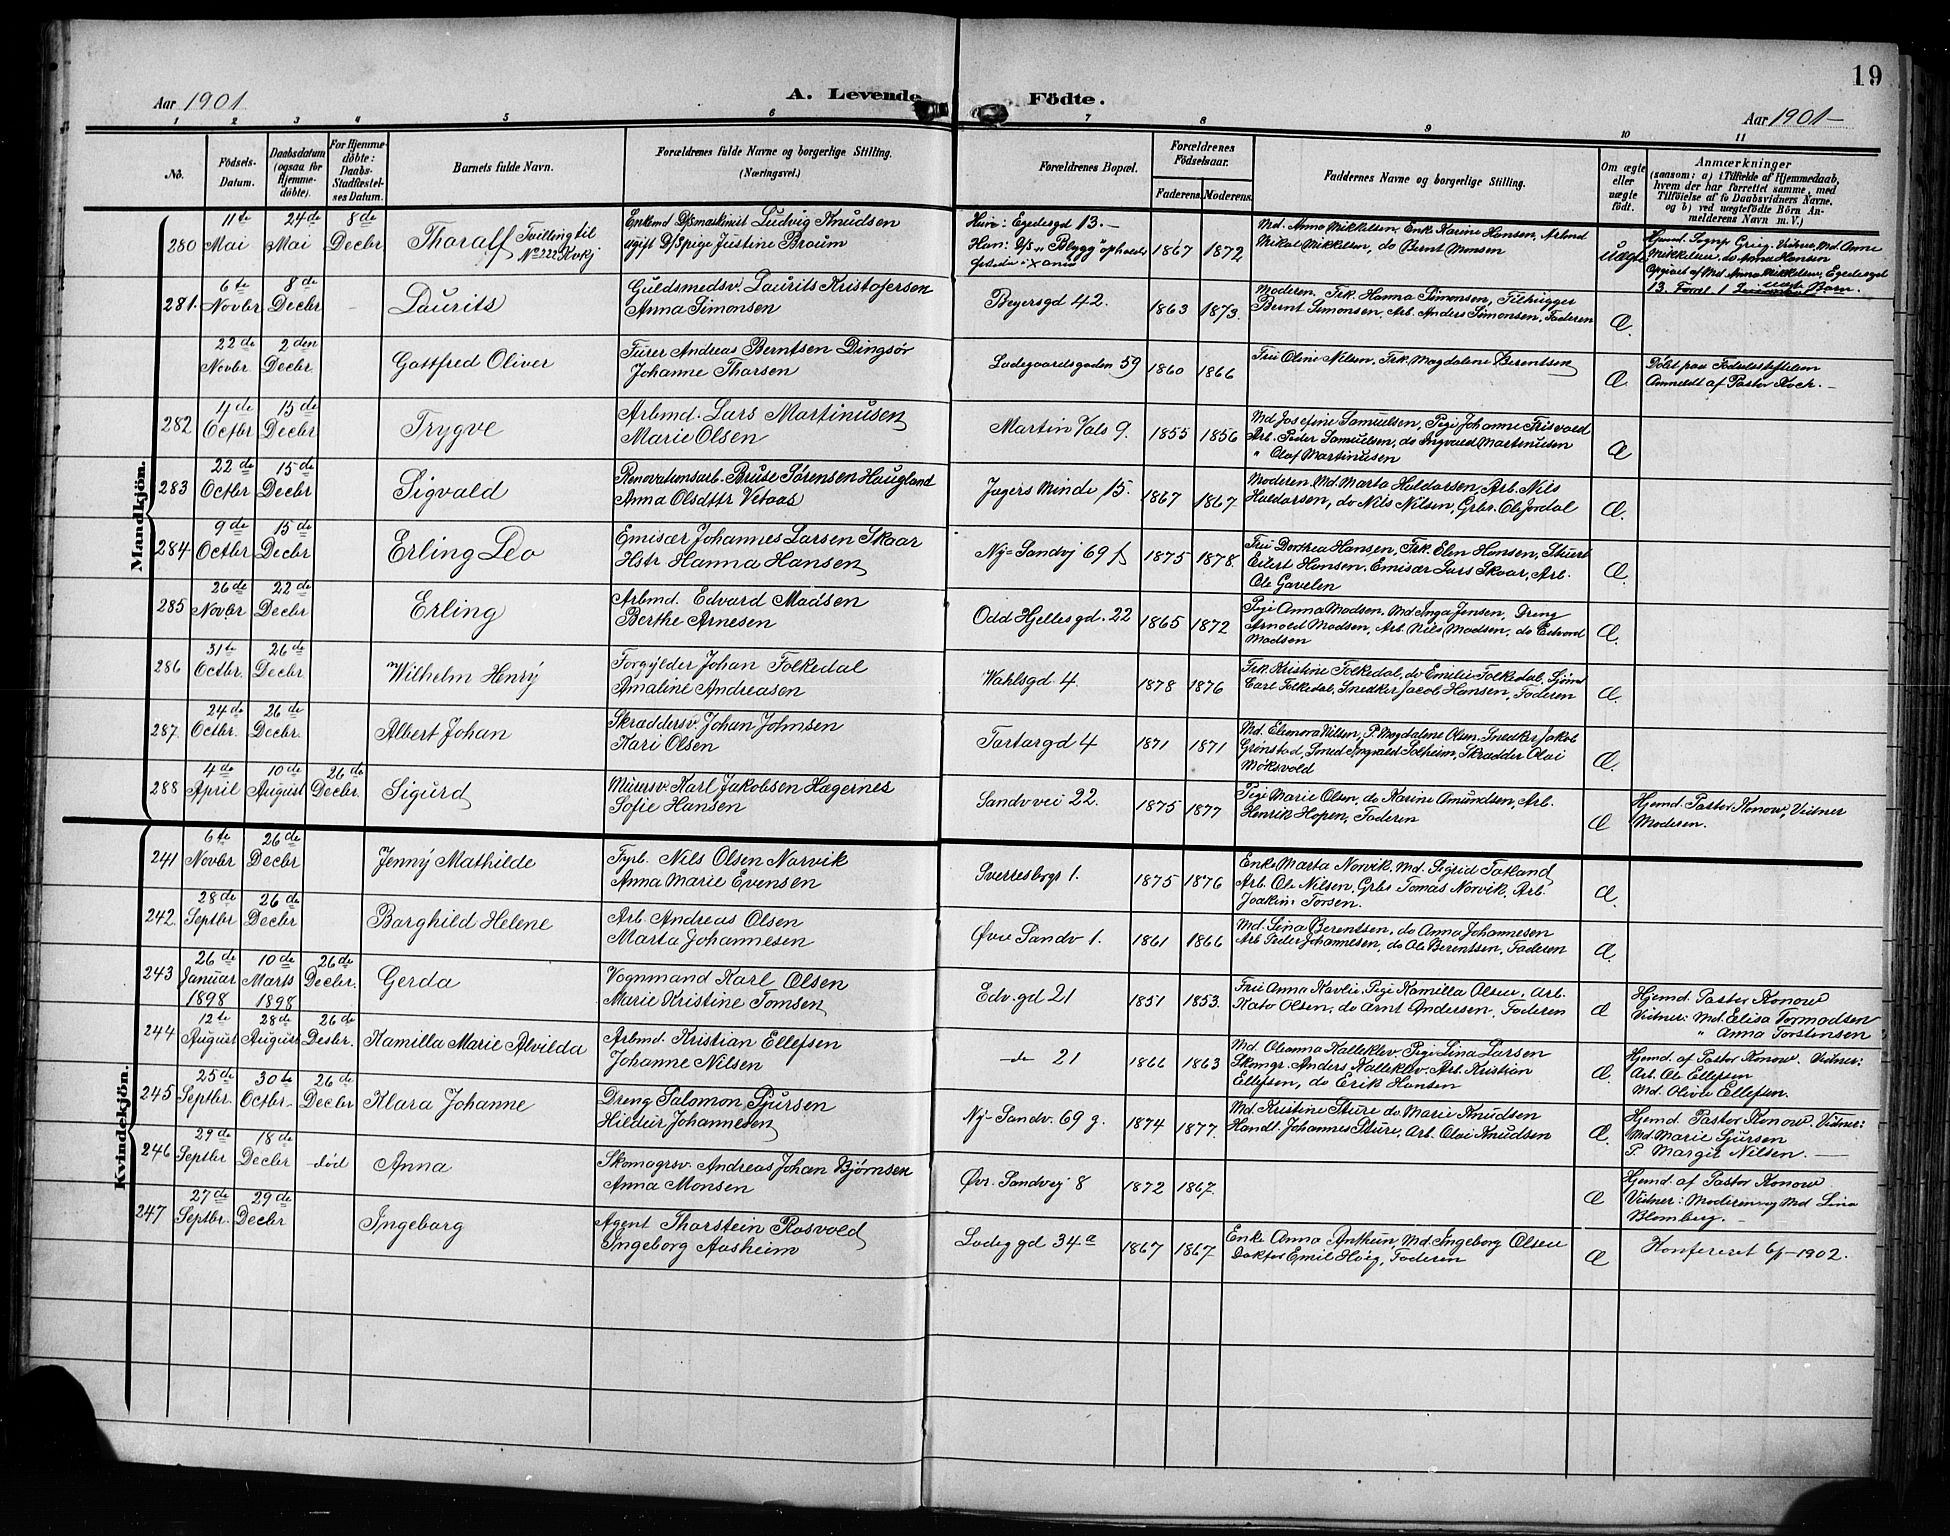 19
Aar 1901
A. Levende Fødte.
Aar 1901
1 2 3 4 5 6 7 8 9 10 11
No.
Fødsels-Datum.
Daabsdatum (ogsaa for Hjemmedøbte).
For Hjemmedøbte: Daabs-Stadfæstelses Datum.
Barnets fulde Navn.
Forældrenes fulde Navne og borgerlige Stilling.
(Næringsvei.)
Forældrenes Bopæl.
Forældrenes Fødselsaar.
Faderens. Moderens.
Faddernes Navne og borgerlige Stilling.
Om ægte eller uægte født.
Anmærkninger
(saasom: a) i Tilfælde af Hjemmedaab,
hvem der har forrettet samme, med
Tilføielse af to Daabsvidners Navne.
og b) ved uægtefødte Börn Anmelderens Navn m. V.)
Mandkjön.
280 11te Mai 24de Mai 8de Decbr Thoralf Tvilling til No 222 Kvkj
Enkemd D/Smaskinist Ludvig Knudsen
ugift D/Spige Justine Broum
Hun: Egedesgd 13.
1867 1872
Md. Anna Mikkelsen, Enk. Karine Hansen, Arbmd
Mikal Mikkelsen, do Bernt Monsen
uægte
281. 6te Novbr 8de Decbr Laurits
Guldsmedsv. Laurits Kristofersen
Anna Simonsen
Beyersgd 42. 1863 1873.
Moderen. Frk. Hanna Simonsen, Tilhugger
Bernt Simonsen, Arb. Anders Simonsen, Faderen
Æ.
22de Novbr 2den Decbr Gottfred Oliver
Furer Andreas Berntsen Dingsør
Johanne Thorsen
Ladegaardsgaden 59 1860 1866
Fru Oline Nilsen, Frk. Magdalene Berentsen
Æ
Døbt paa Fødselsstiftelsen
Anmeldt af Pastor Koch.
282 4de Octbr 15de Decbr Trygve
Arbmd. Lars Martinusen
Marie Olsen
Martin Vals 9. 1855 1856
Md Josefine Samuelsen, Pige Johanne Trisvold
Arb. Peder Samuelsen, do Ingvald Martinusen
" Olaf Martinusen
Æ
283 22de Octbr 15de Decbr Sigvald
Renovationsarb. Bruse Sørensen Haugland
Anna Olsdttr Vetaas
Jægers Minde 15. 1867 1867
Moderen. Md. Marta Haldorsen, Arb. Nils
Haldorsen, do Nils Nilsen, Grbr. Ole Jordal
Æ.
284 9de Octbr 15de Decbr Erling Leo
Emisær Johannes Larsen Skaar
Hstr Hanna Hansen
Ny-Sandvj 69 f 1875 1878.
Fru Dorthea Hansen, Frk. Elen Hansen, Stuert
Eilert Hansen, Emisær Lars Skaar, Arb.
Ole Gavelen
Æ.
285 26de Novbr 22de Decbr Erling
Arbmd. Edvard Madsen
Berthe Arnesen
Odd Hjellesgd. 22 1865 1872
Pige Anna Madsen, Md Inga Jensen, Dreng
Arnold Madsen, Arb. Nils Madsen, do Edvard
Madsen
Æ.
286 31te Octbr. 26de Decbr. Wilhelm Henrÿ
Forgylder Johan Folkedal
Amaline Andreasen
Wahlsgd 4. 1878 1876
Frk. Kristine Folkedal, do Emilie Folkedal, Sjømd
Carl Folkedal, Snedker Jacob Hansen, Faderen
Æ.
287. 24de Octbr. 26de Decbr. Albert Johan
Skræddersv. Johan Johnsen
Kari Olsen
Tartargd 4 1871 1871
Md. Elenora Nilsen, P. Magdalene Olsen, Snedker Jakob
Grønstad, Smed Ingvald Solheim, Skrædder Olai
Møksvold
Æ.
288 4de April 10de August 26de Decbr. Sigurd
Murersv. Karl Jakobsen Hægernes
Sofie Hansen
Sandvvei 22. 1875 1877
Pige Marie Olsen, do Karine Amundsen, Arb.
Henrik Hopen, Faderen
Æ
Hjemd. Pastor Konow, Vidner
Moderen.
Kvindekjön.
241 6te Novbr 26de Decbr Jennÿ Mathilde
Fyrb. Nils Olsen Norvik
Anna Marie Evensen
Sverresborg 1. 1875 1876
Enke Marta Norvik, Md. Sigrid Tatland
Arb. Ole Nilsen, Grbr Tomas Norvik, Arb.
Joakim Torsen.
Æ.
242. 28de Septbr 26de Decbr Borghild Helene
Arb. Andreas Olsen
Marta Johannesen
Øvre Sandv 1. 1861 1866
Md. Lina Berentsen, do Anna Johannesen
Arb. Peder Johannesen, do Ole Berentsen, Faderen
Æ.
243 26de Januar 1898 10de Marts 1898 26de Decbr. Gerda
Vognmand Karl Olsen
Marie Kristine Tomsen
Edv. gd 21 1851 1853.
Fru Anna Kavlie, Pige Kamilla Olsen, Arb.
Kato Olsen, do Arnt Andersen, Faderen
Æ
Hjemd. Pastor Konow
Vidner: Md. Elisa Tormodsen
" Anna Torstensen
244 12te August 28de August 26de Desbr. Kamilla Marie Alvilda
Arbmd. Kristian Ellefsen
Johanne Nilsen
—de 21 1866 1863
Md. Oleanna Kalleklev, Pige Lina Larsen
Skomgr. Anders Kalleklev, Arb. Kristian
Ellefsen, do Erik Hansen
Æ.
Hjemd. af Pastor Konow. Vidner:
Arb. Ole Ellefsen
Md. Olive Ellefsen.
245 25de Septbr. 30te Octbr. 26de Decbr Klara Johanne
Dreng Salomon Sjursen
Hildeir Johannesen
Ny-Sandv. 69 g. 1874 1877.
Md. Kristine Sture do Marie Knudsen
Handl. Johannes Sture, Arb. Olai Knudsen
Æ.
Hjemd. Pastor Konow. Vidner:
Md. Marie Sjursen
P. Margit Nilsen.
246 29de Septbr 18de Decbr død Anna
Skomagrsv. Andreas Johan Bjørnsen
Anna Monsen
Øvr. Sandvej 8 1872 1867.
Æ
Hjemd. af Pastor Konow
Vidner: Moderen og Md Lina
Blomberg.
247 27de Septbr. 29de Decbr Ingeborg
Agent Thorstein Rosvold
Ingeborg Aasheim
Ladeg gd 34a 1867 1867
Enke Anna Anthun, Md. Ingeborg Olsen
Doktor Emil Høeg, Faderen
Æ
Konfereret 6/1-1902.